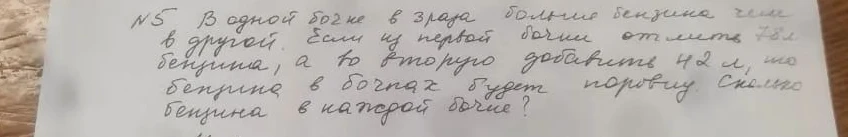 N5 В одной бочке в 3 раза больше бензина чем
в другой. Если из первой бочки отлить 78 л
бензина, а во вторую добавить 42 л, то
бензина в бочках будет поровну. Сколько
бензина в каждой бочке?